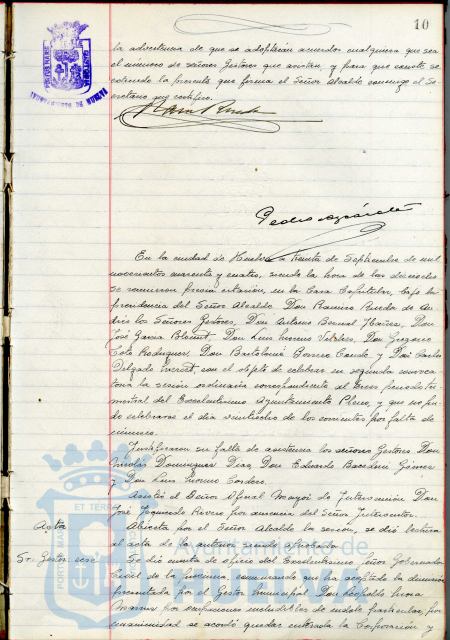 10
la advertencia de que se adoptarán acuerdos cualquiera que sea
el número de señores Gestores que asistan, y para que conste se
extiende la presente que firma el Señor Alcalde conmigo el Se-
cretario que certifico.
En la ciudad de Huelva a treinta de Septiembre de mil
novecientos cuarenta y cuatro, siendo la hora de las
se reunieron previa citación, en la Casa Capitular, bajo la
presidencia del Señor Alcalde Don
los Señores Gestores, Don Antonio Bernal Don
José Don Luis Moreno Don Gregorio
Rodríguez, Don Bartolomé Romero Conde y Don Carlos
Delgado con el objeto de celebrar en segunda convoca-
toria la sesión ordinaria correspondiente al tercer periodo tri-
mestral del Excelentísimo Ayuntamiento Pleno, y que no pu-
do celebrarse el día veintiocho de los corrientes por falta de
número.
Justificaron su falta de asistencia los señores Gestores Don
Nicolás Domínguez Díaz, Don Eduardo Gómez
y Don Luis Moreno Cordero.
Asistió el Señor Oficial Mayor de Intervención Don
José Rivero por ausencia del Señor Interventor.
Acta Abierta por el Señor Alcalde la sesión, se dió lectura
al acta de la anterior siendo aprobada.
Sr. Gestor cese Se dió cuenta de oficio del Excelentísimo Señor Gobernador
Civil de la provincia, comunicando que ha aceptado la dimisión
presentada por el Gestor Municipal Don Leopoldo
por ocupaciones ineludibles de índole particular, por
unanimidad se acordó quedar enterada la Corporación y
Ayuntamiento de